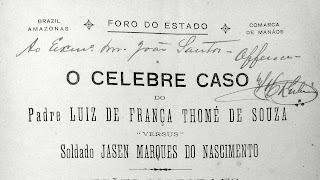 BRAZIL
AMAZONAS
FORO DO ESTADO
COMARCA
DE MANÁOS
Ao Exmº Snr. João Santos -
Offerece
O CELEBRE CASO
DO
Padre LUIZ DE FRANÇA THOMÉ DE SOUZA
"VERSUS"
Soldado JASEN MARQUES DO NASCIMENTO